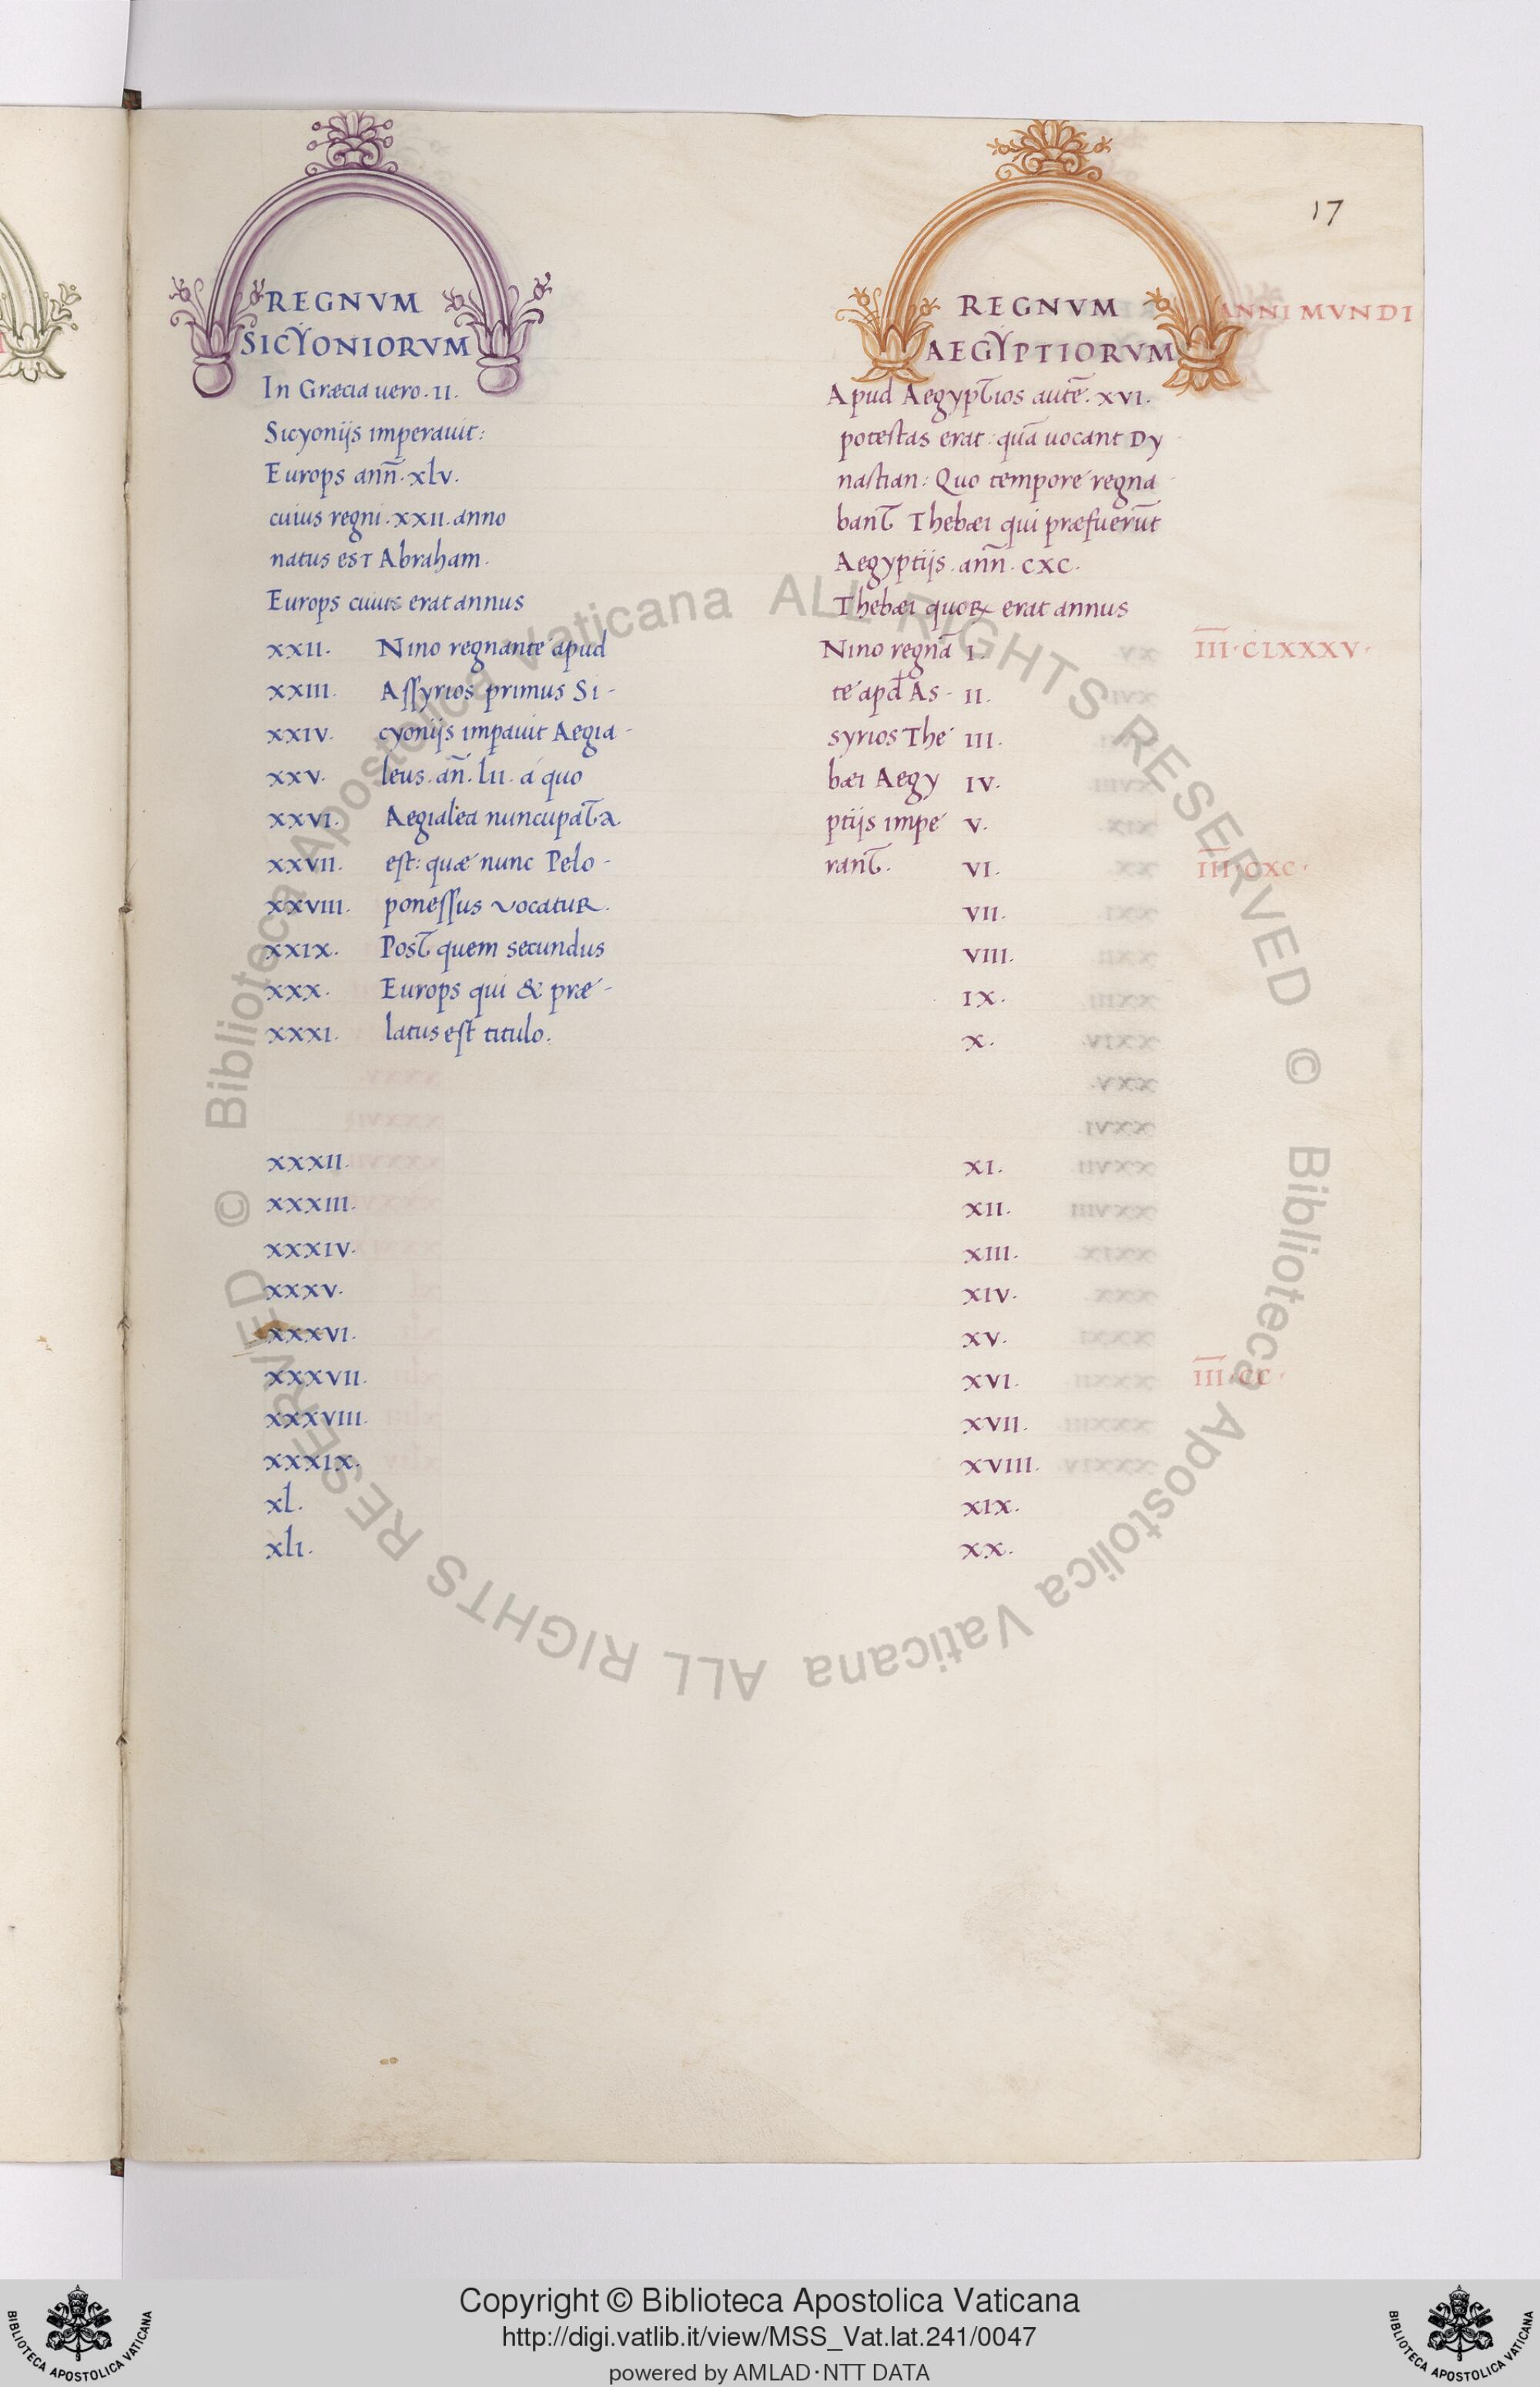 17
REGNVM
SICYONIORVM
In Græcia uero . II.
Sicyonijs imperauit:
Europs ann̄. xlv.
cuius regni . XXII. anno
natus est Abraham.
Europs cuius erat annus
XXII. Nino regnante apud
XXIII. Assyrios primus Si-
XXIV. cyonijs imꝑauit Aegia-
XXV. leus. an̄. lii. a quo
XXVI. Aegialea nuncupata
XXVII. est: quæ nunc Pelo-
XXVIII. ponessus vocatur.
XXIX. Post quem secundus
XXX. Europs qui & præ-
XXXI. latus est titulo.
XXXII.
XXXIII.
XXXIV.
XXXV.
XXXVI.
XXXVII.
XXXVIII.
XXXIX.
xl.
xli.
REGNVM
AEGYPTIORVM
Apud Aegyptios autē. XVI.
potestas erat: quā uocant Dy-
nastian: Quo tempore regna-
bant Thebæi qui præfuerūt
Aegyptijs. ann̄. CXC.
Thebæi quoꝝ erat annus
Nino regnā I.
te apđ As- II.
syrios The III.
bæi Aegy IV.
ptijs impe V.
rant. VI.
VII.
VIII.
IX.
X.
XI.
XII.
XIII.
XIV.
XV.
XVI.
XVII.
XVIII.
XIX.
XX.
ANNI MVNDI
I̅I̅I̅·CLXXXV·
I̅I̅I̅·CXC·
I̅I̅I̅·CC·
© Biblioteca Apostolica Vaticana ALL RIGHTS RESERVED
© Biblioteca Apostolica Vaticana ALL RIGHTS RESERVED
Copyright © Biblioteca Apostolica Vaticana
http://digi.vatlib.it/view/MSS_Vat.lat.241/0047
powered by AMLAD·NTT DATA
BIBLIOTECA APOSTOLICA VATICANA
BIBLIOTECA APOSTOLICA VATICANA